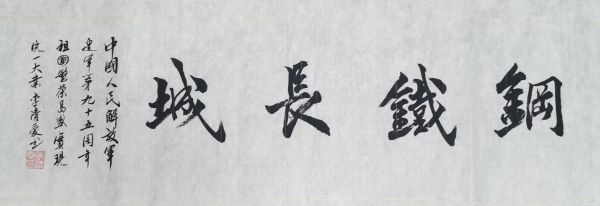 鋼鐵長城
中國人民解放軍
建軍第九十五周年
祖國繁榮昌盛實現
统一大業李清爱书